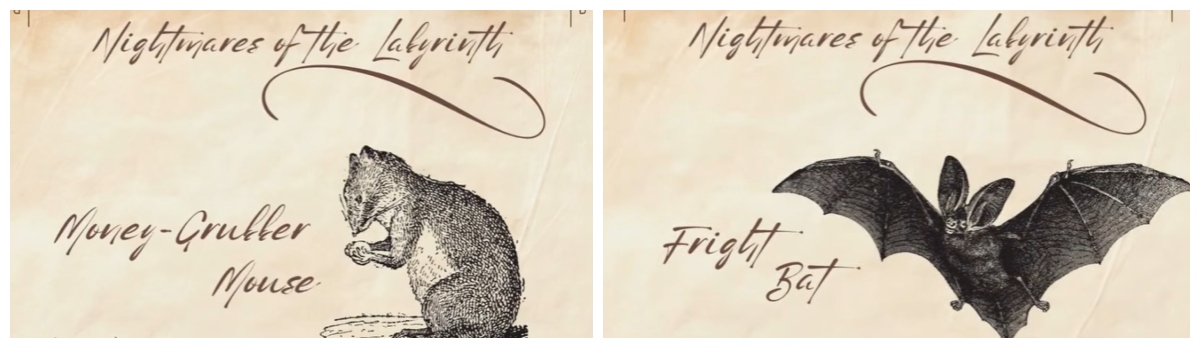 Nightmares of the Labyrinth
Money-Grubber
Mouse
Nightmares of the Labyrinth
Fright
Bat